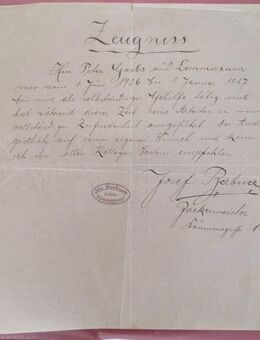 Zeugniss
Herr Peter Garbs aus Lommersum
war vom 1 Juni 1926 bis 1 Januar 1927
bei mir als selbständiger Gehilfe tätig und
hat während dieser Zeit seine Arbeiten zu meiner
vollständigen Zufriedenheit ausgeführt. Der Aus
auf seinen eigenen Wunsch und kann
ich ihn allen Kollegen bestens empfehlen
Josef
Bäckermeister
Jos.